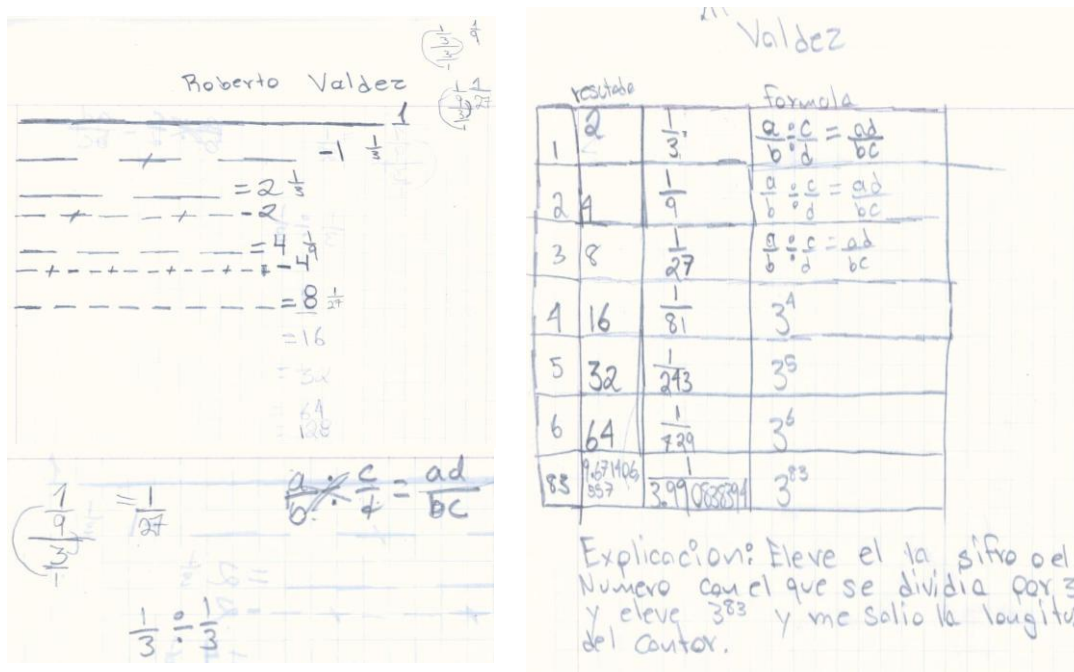 Roberto Valdez
1/3 1/9
1/27
1
-1 1/3
= 2 1/3
- 2
= 4 1/9
- 4
= 8 1/27
= 16
= 32
= 64
= 128
1/9 / 3/1 = 1/27
a/b ÷ c/d = ad/bc
1/3 ÷ 1/3
Valdez
resutado formula
1 2 1/3 a/b ÷ c/d = ad/bc
2 4 1/9 a/b ÷ c/d = ad/bc
3 8 1/27 a/b ÷ c/d = ad/bc
4 16 1/81 3^4
5 32 1/243 3^5
6 64 1/729 3^6
83 9.671406557 1/3.990838394 3^83
Explicacion: Eleve el la sifra o el
Numero con el que se dividia por 3
y eleve 3^83 y me salio la longitu
del cantor.